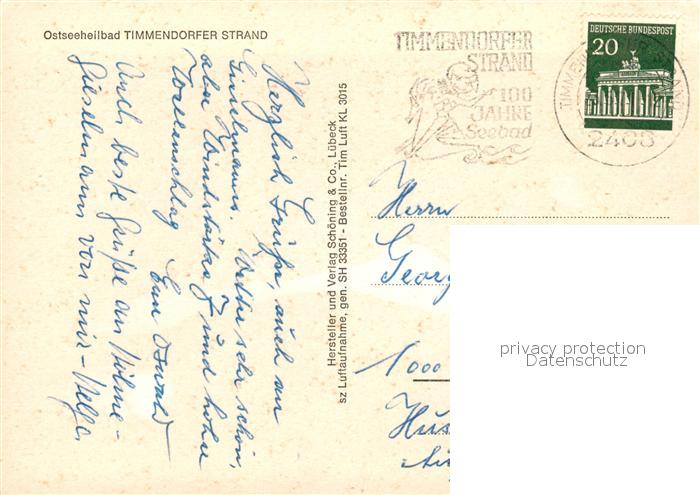 Ostseeheilbad TIMMENDORFER STRAND
TIMMENDORFER
STRAND
100
JAHRE
Seebad
DEUTSCHE BUNDESPOST
20
2408
Herzlich Grüße, auch an
Wetter sehr schön,
aber Windstärke 7 und hoher
Wellenschlag
Euer Oswald
Auch beste Grüße an
von mir - Helga
Hersteller und Verlag Schöning & Co., Lübeck
sz Luftaufnahme, gen. SH 33351 - Bestellnr. Tim Luft KL 3015
Herrn
Georg
1000
privacy protection
Datenschutz